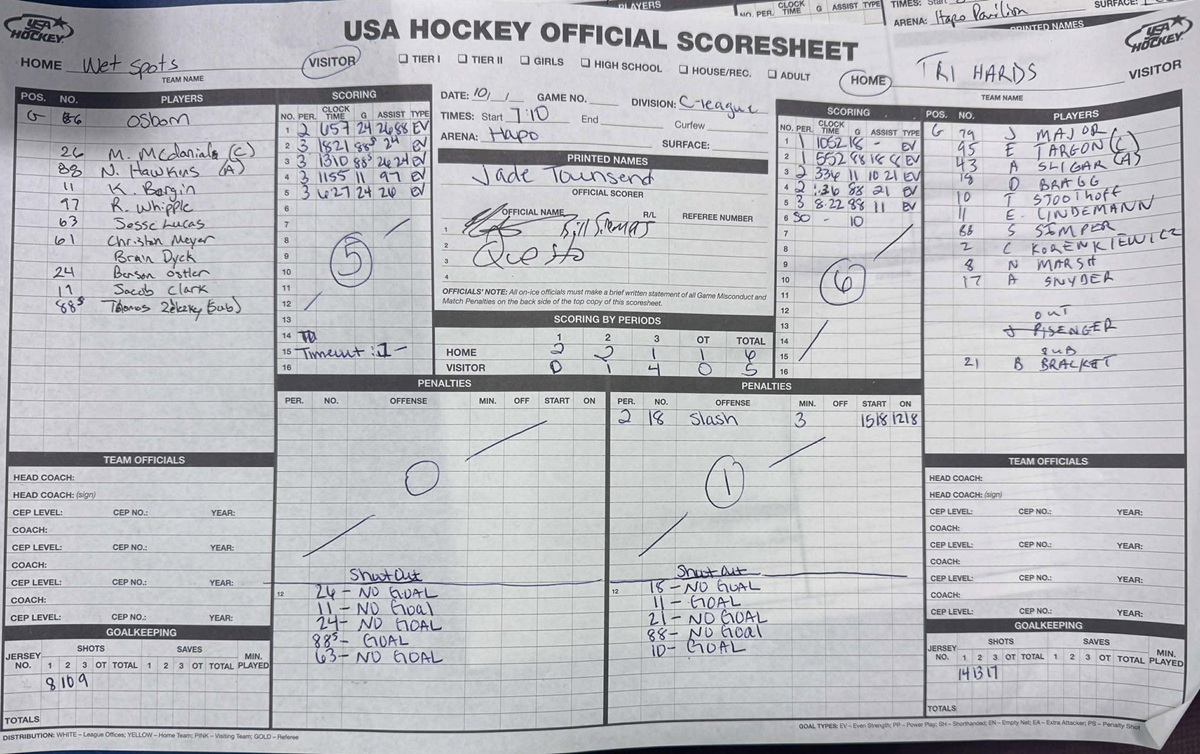 PLAYERS
NO. PER. CLOCK TIME G ASSIST TYPE
TIMES: Start
SURFACE:
ARENA: Hapo Pavilion
PRINTED NAMES
USA HOCKEY
USA HOCKEY OFFICIAL SCORESHEET
USA HOCKEY
HOME Wet Spots VISITOR
TEAM NAME
TIER I TIER II GIRLS HIGH SCHOOL HOUSE/REC. ADULT
HOME TRI HARDS VISITOR
TEAM NAME
POS. NO. PLAYERS
G 86 Osborn
26 M. McDanials (C)
88 N. Hawkins (A)
11 K. Bargin
97 R. Whipple
63 Jesse Lucas
61 Christon Meyer
Brain Dyck
24 Benson Ostler
17 Jacob Clark
88s Thomas Zelezky (Sub)
SCORING
NO. PER. CLOCK TIME G ASSIST TYPE
1 2 657 24 26 88 EV
2 3 1821 88s 24 EV
3 3 1310 88s 26 24 EV
4 3 1155 11 97 EV
5 3 627 24 26 EV
6
7
8
9
10
11
12
13
14
15 Timeout: 1 -
16
5
DATE: 10/ / GAME NO. DIVISION: C-league
TIMES: Start 7:10 End Curfew
ARENA: Hapo SURFACE:
PRINTED NAMES
Jade Townsend
OFFICIAL SCORER
OFFICIAL NAME R/L REFEREE NUMBER
1
2
3 Questo
4
OFFICIALS' NOTE: All on-ice officials must make a brief written statement of all Game Misconduct and
Match Penalties on the back side of the top copy of this scoresheet.
SCORING BY PERIODS
1 2 3 OT TOTAL
HOME 2 2 1 1 6
VISITOR 0 1 4 0 5
SCORING
NO. PER. CLOCK TIME G ASSIST TYPE
1 1 1052 18 - EV
2 1 552 88 18 8 EV
3 2 336 11 10 21 EV
4 2 :36 88 21 EV
5 3 8:22 88 11 EV
6 SO - 10
7
8
9
10
11
12
13
14
15
16
6
POS. NO. PLAYERS
G 79 J MAJOR
95 E TARGON (C)
43 A SLIGAR (A)
18 D BRAGG
10 T STOOTHOFF
11 E. LINDEMANN
88 S SIMPER
2 C KORENKIEWICZ
8 N MARSH
17 A SNYDER
OUT
J PISENGER
SUB
21 B BRACKET
PENALTIES
PER. NO. OFFENSE MIN. OFF START ON
0
Shut Out
12 26 - NO GOAL
11 - NO GOAL
24 - NO GOAL
88s - GOAL
63 - NO GOAL
PENALTIES
PER. NO. OFFENSE MIN. OFF START ON
2 18 Slash 3 1518 1218
1
Shut Out
12 18 - NO GOAL
11 - GOAL
21 - NO GOAL
88 - NO GOAL
10 - GOAL
TEAM OFFICIALS
HEAD COACH:
HEAD COACH: (sign)
CEP LEVEL: CEP NO.: YEAR:
COACH:
CEP LEVEL: CEP NO.: YEAR:
COACH:
CEP LEVEL: CEP NO.: YEAR:
COACH:
CEP LEVEL: CEP NO.: YEAR:
GOALKEEPING
JERSEY NO. SHOTS SAVES MIN. PLAYED
1 2 3 OT TOTAL 1 2 3 OT TOTAL
8 10 9
TOTALS
TEAM OFFICIALS
HEAD COACH:
HEAD COACH: (sign)
CEP LEVEL: CEP NO.: YEAR:
COACH:
CEP LEVEL: CEP NO.: YEAR:
COACH:
CEP LEVEL: CEP NO.: YEAR:
COACH:
CEP LEVEL: CEP NO.: YEAR:
GOALKEEPING
JERSEY NO. SHOTS SAVES MIN. PLAYED
1 2 3 OT TOTAL 1 2 3 OT TOTAL
14 13 17
TOTALS
DISTRIBUTION: WHITE – League Offices; YELLOW – Home Team; PINK – Visiting Team; GOLD – Referee
GOAL TYPES: EV – Even Strength; PP – Power Play; SH – Shorthanded; EN – Empty Net; EA – Extra Attacker; PS – Penalty Shot